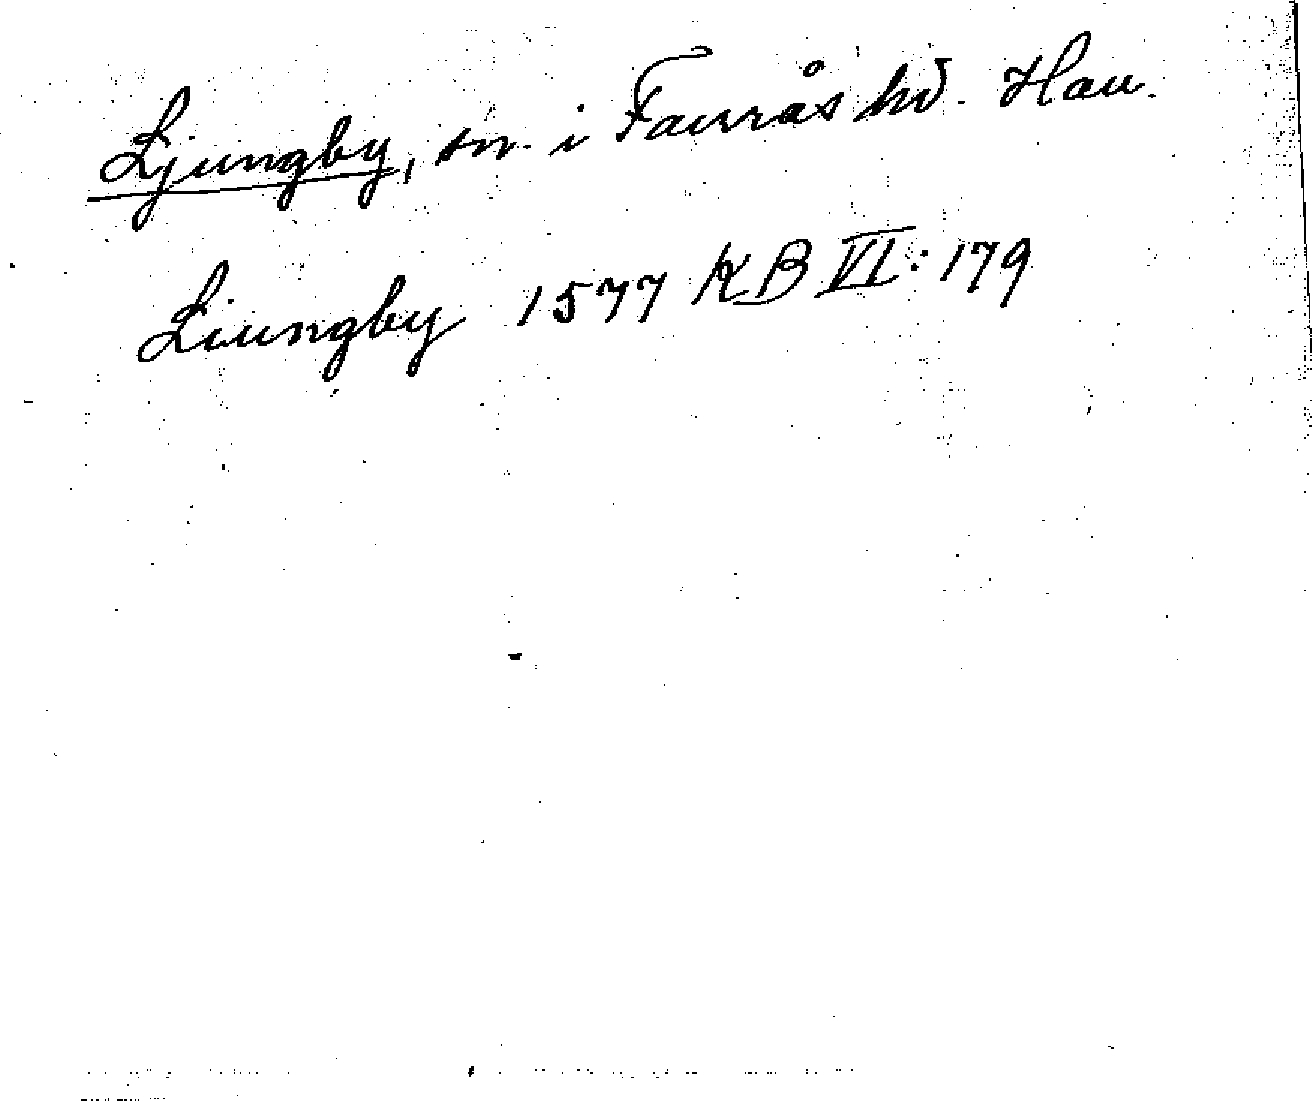 Ljungby, sn. i Faurås hd. Hall.
Liungby 1577 KB VI: 179